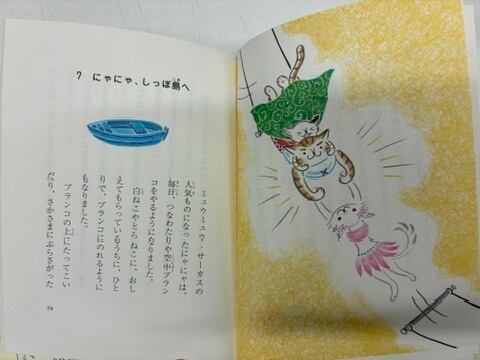 7 にゃにゃ、しっぽ島へ
ミュウミュウ・サーカスの
人気ものになったにゃにゃは、
毎日、つなわたりや空中ブラン
コをやるようになりました。
白ねこやとらねこに、おし
えてもらっているうちに、ひと
りで、ブランコにのれるように
もなりました。
ブランコの上にたってこい
だり、さかさまにぶらさがった
79